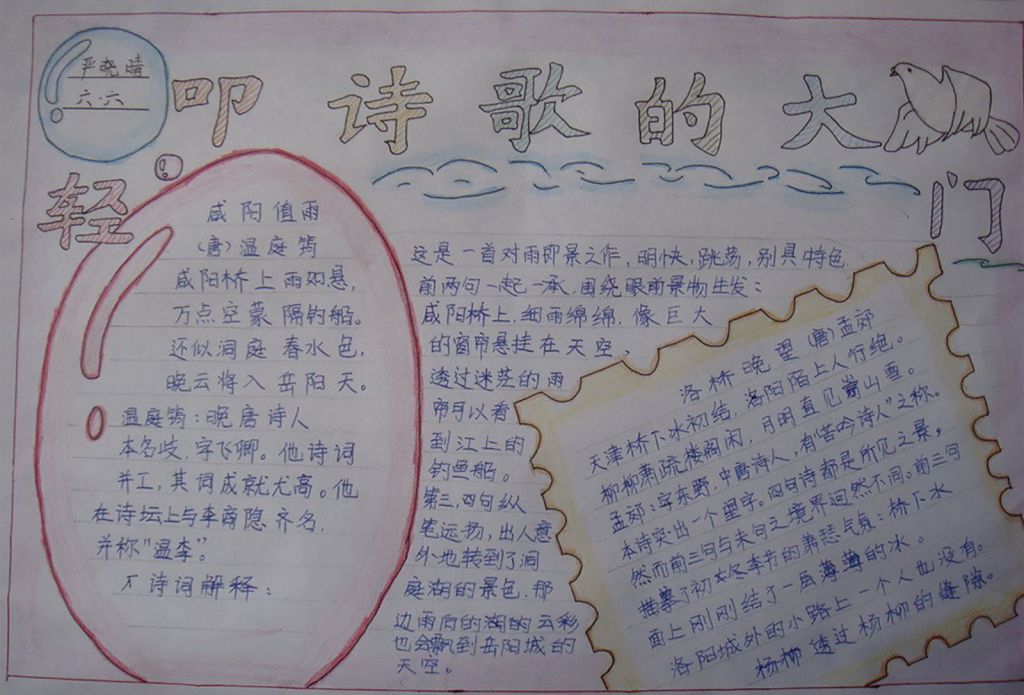 严晓晴
六.六
轻叩诗歌的大门
咸阳值雨
(唐)温庭筠
咸阳桥上雨如悬,
万点空蒙隔钓船。
还似洞庭春水色,
晚云将入岳阳天。
温庭筠:晚唐诗人
本名岐,字飞卿。他诗词
并工,其词成就尤高。他
在诗坛上与李商隐齐名,
并称“温李”。
诗词解释:
这是一首对雨即景之作,明快,跳荡,别具特色.
前两句一起一承.围绕眼前景物生发:
咸阳桥上.细雨绵绵.像巨大
的窗帘悬挂在天空、
透过迷茫的雨
帘可以看
到江上的
钓鱼船。
第三.四句纵
笔远扬,出人意
外地转到了洞
庭湖的景色.那
边雨后的湖的云彩
也会飘到岳阳城的
天空。
洛桥晚望(唐)孟郊
天津桥下冰初结,洛阳陌上人行绝。
柳柳萧疏楼阁闲,月明直见嵩山雪。
孟郊:字东野,中唐诗人,有“苦吟诗人”之称。
本诗突出一个望字。四句诗都是所见之景。
然而前三句与末句之境界迥然不同。前三句
描摹了初冬季节的萧瑟气氛:桥下水
面上刚刚结了一层薄薄的冰。
洛阳城外的小路上一个人也没有。
杨柳透过杨柳的缝隙。